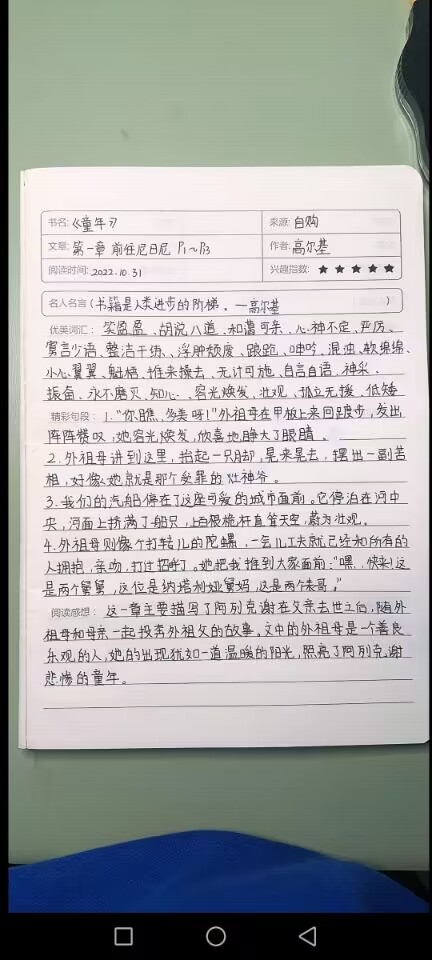 书名:《童年》 来源:自购
文章:第一章 前往尼日尼 P1~P3 作者:高尔基
阅读时间:2022.10.31 兴趣指数:★★★★★
名人名言(书籍是人类进步的阶梯。—高尔基)
优美词汇:笑盈盈、胡说八道、和蔼可亲、心神不定、严厉、
寡言少语、整洁干练、浮肿颓废、踉跄、呻吟、混浊、软绵绵、
小心翼翼、魁梧、推来搡去、无计可施、自言自语、神采、
振奋、永不磨灭、知心、容光焕发、壮观、孤立无援、低矮
精彩句段:1."你瞧,多美呀!"外祖母在甲板上来回踱步,发出
阵阵赞叹,她容光焕发,欣喜地睁大了眼睛。
2.外祖母讲到这里,抬起一只脚,晃来晃去,摆出一副苦
相,好像她就是那个受罪的灶神爷。
3.我们的汽船停在了这座可爱的城市面前。它停泊在河中
央,河面上挤满了船只,上百根桅杆直耸天空,蔚为壮观。
4.外祖母则像个打转儿的陀螺,一会儿工夫就已经和所有的
人拥抱,亲吻,打过招呼了。她把我推到大家面前:"嘿,快来!这
是两个舅舅,这位是纳塔利娅舅妈,这是两个表哥。"
阅读感想:这一章主要描写了阿列克谢在父亲去世之后,随外
祖母和母亲一起投奔外祖父的故事。文中的外祖母是一个善良
乐观的人,她的出现犹如一道温暖的阳光,照亮了阿列克谢
悲惨的童年。